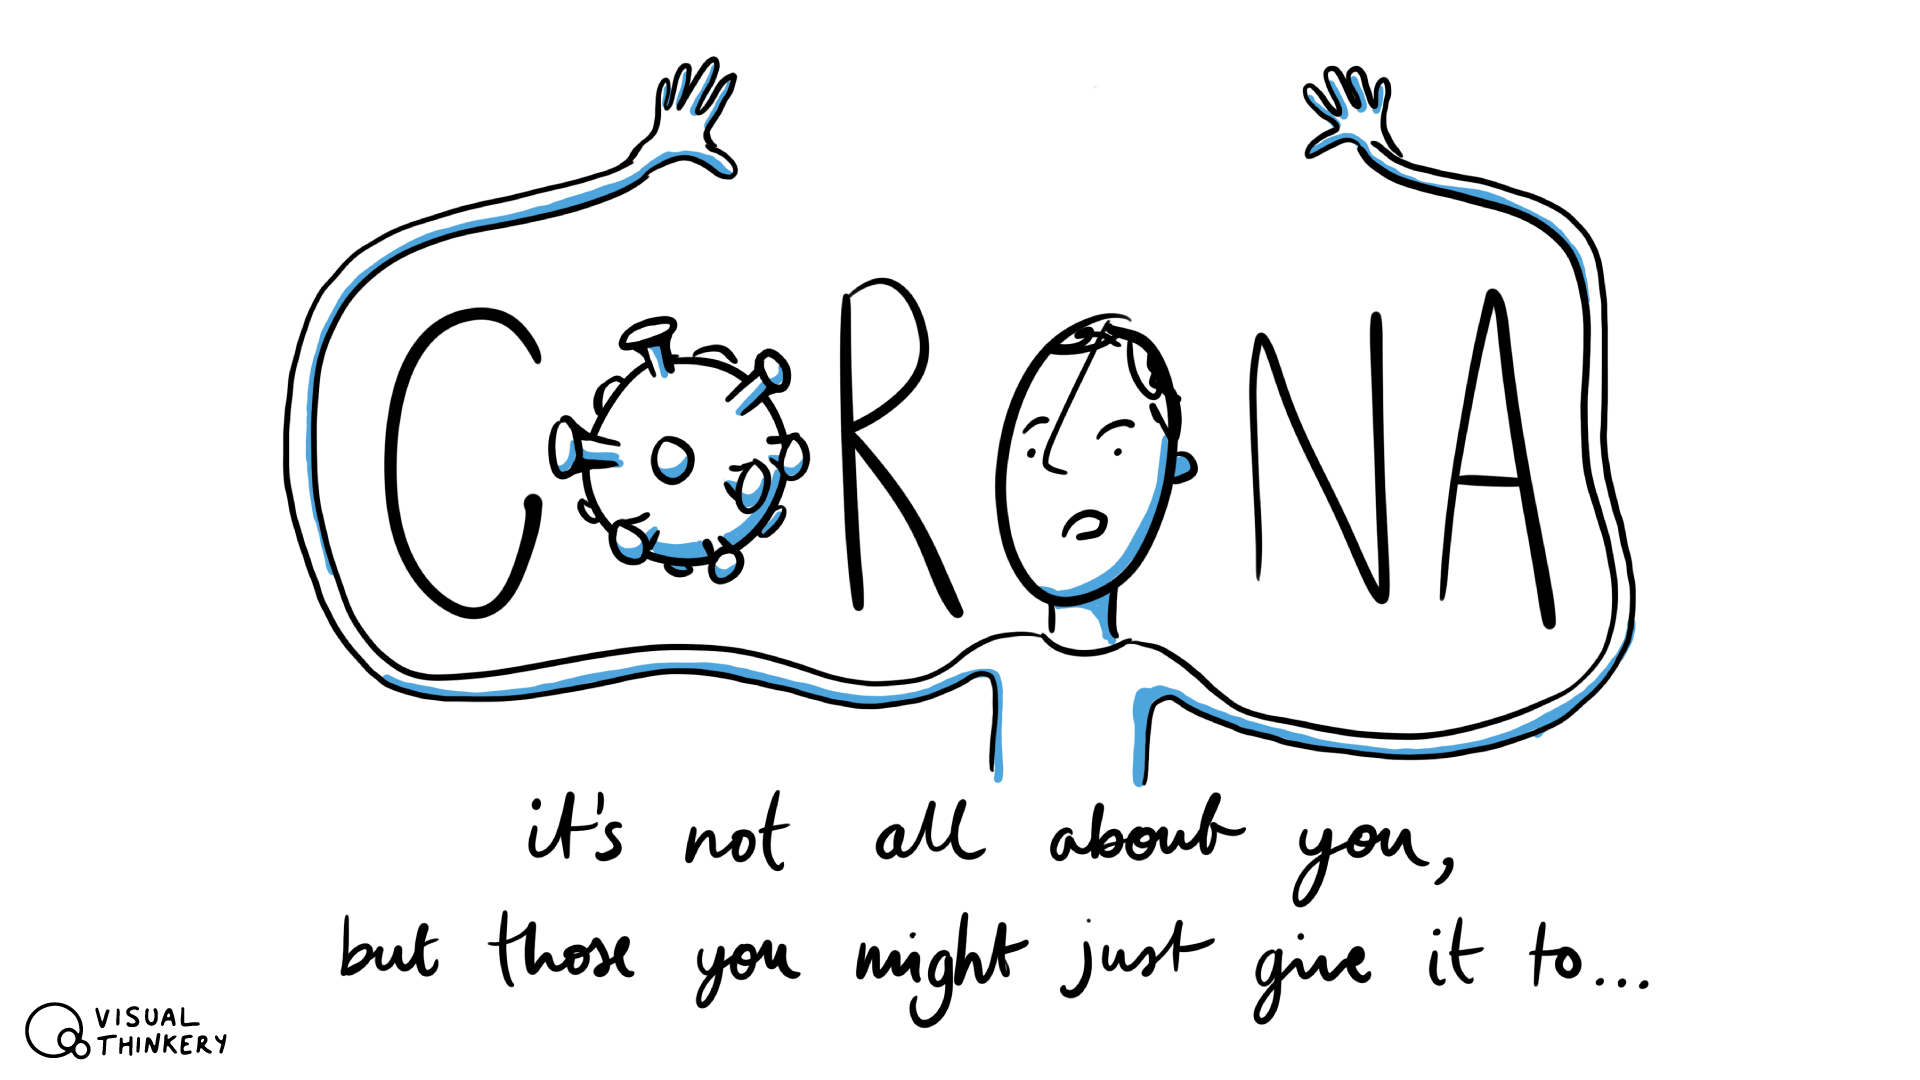 CORONA
it's not all about you,
but those you might just give it to...
VISUAL
THINKERY